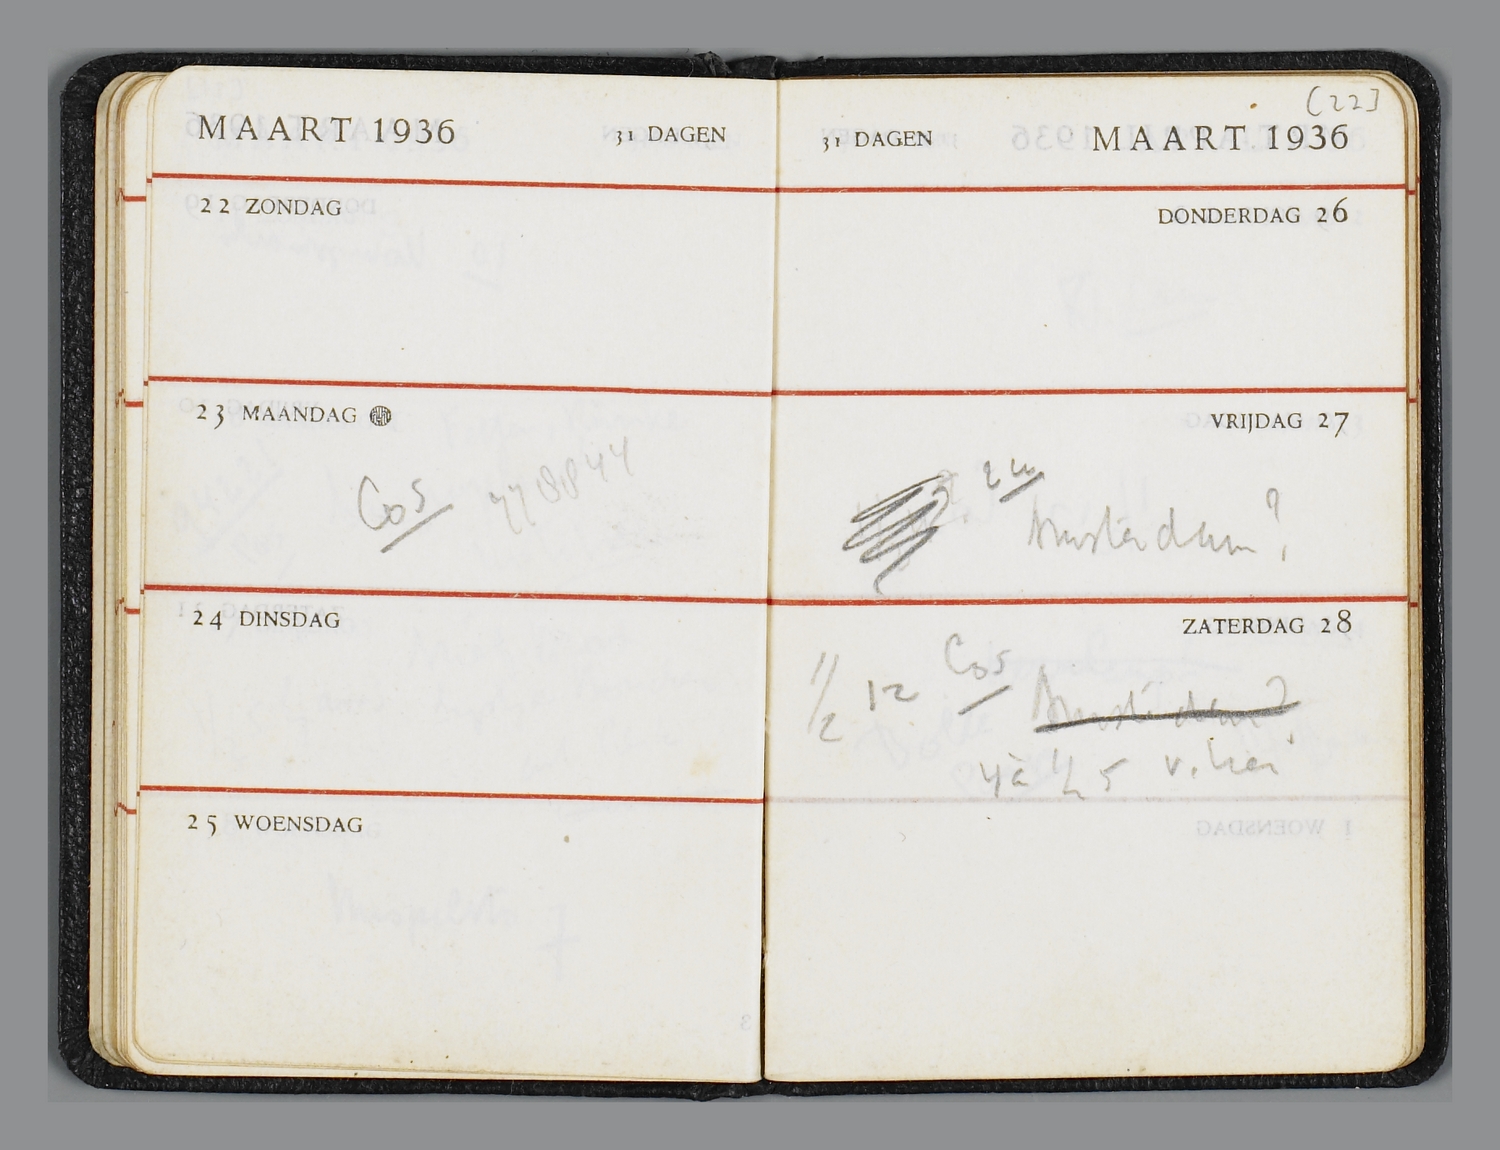 MAART 1936 31 DAGEN
22 ZONDAG
23 MAANDAG
Cos 778844
24 DINSDAG
25 WOENSDAG
[22]
31 DAGEN MAART 1936
DONDERDAG 26
VRIJDAG 27
Amsterdam?
ZATERDAG 28
1/2 12 Cos Amsterdam?
4 à 1/2 5